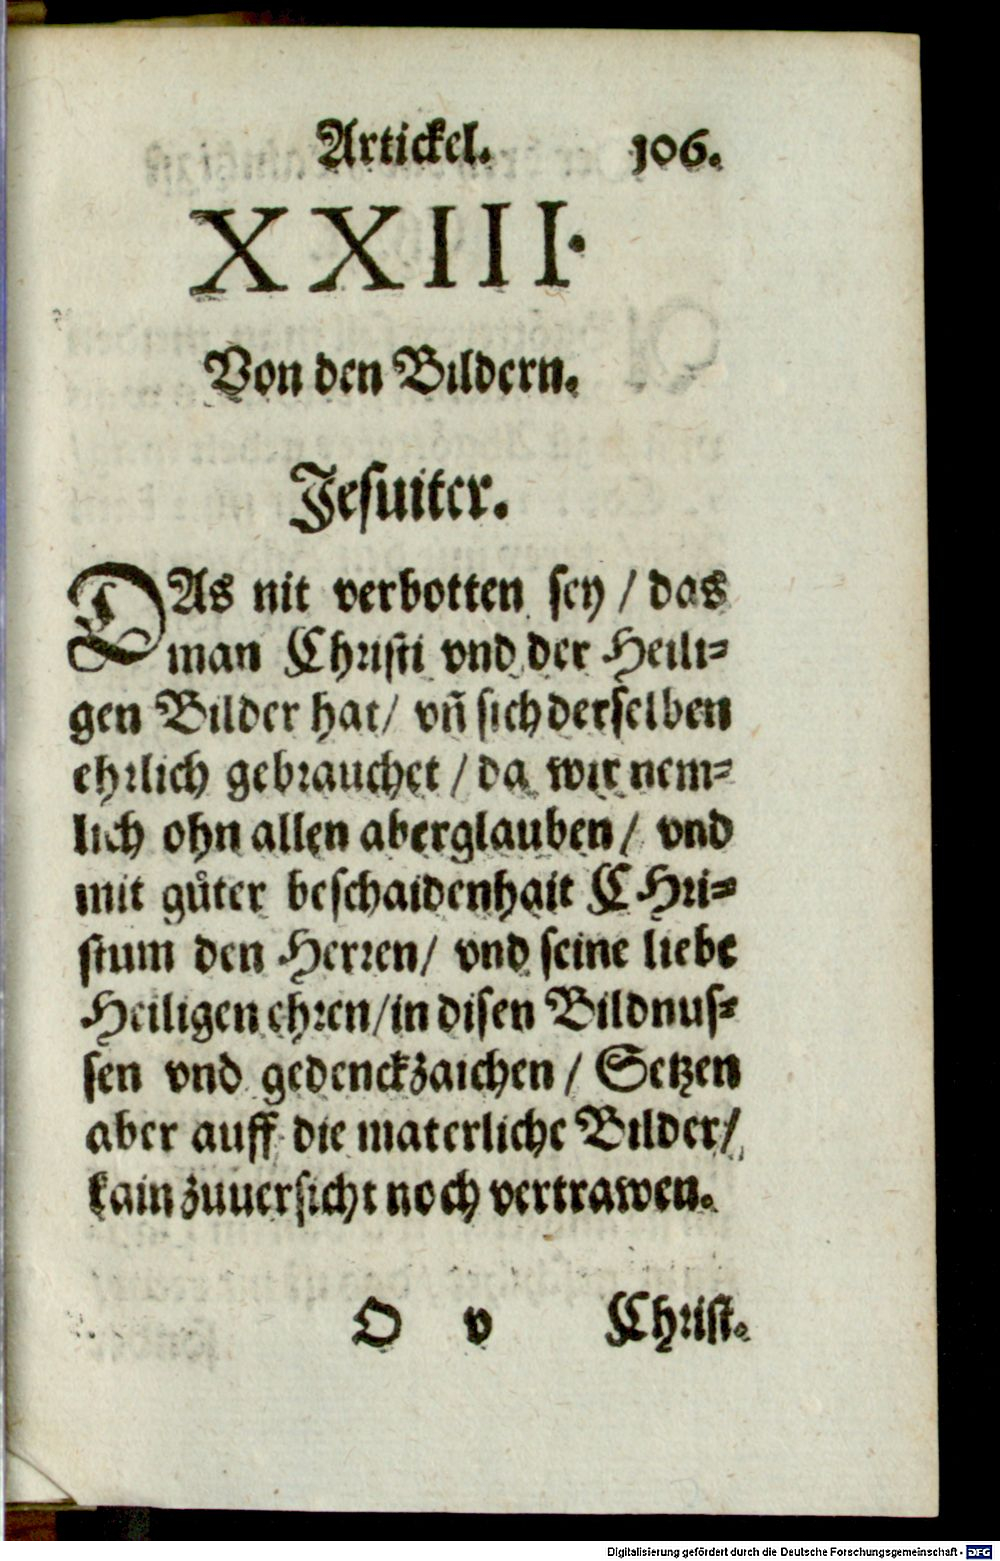 Artickel. 106.
XXIII.
Von den Bildern.
Jesuiter.
DAs nit verbotten sey / das
man Christi vnd der Heili⸗
gen Bilder hat / vñ sich derselben
ehrlich gebrauchet / da wir nem⸗
lich ohn allen aberglauben / vnd
mit gůter beschaidenhait CHri⸗
stum den Herren / vnd seine liebe
Heiligen ehren / in disen Bildnus⸗
sen vnd gedenckzaichen / Setzen
aber auff die materliche Bilder /
kain zuuersicht noch vertrawen.
O v Christ.
Digitalisierung gefördert durch die Deutsche Forschungsgemeinschaft - DFG